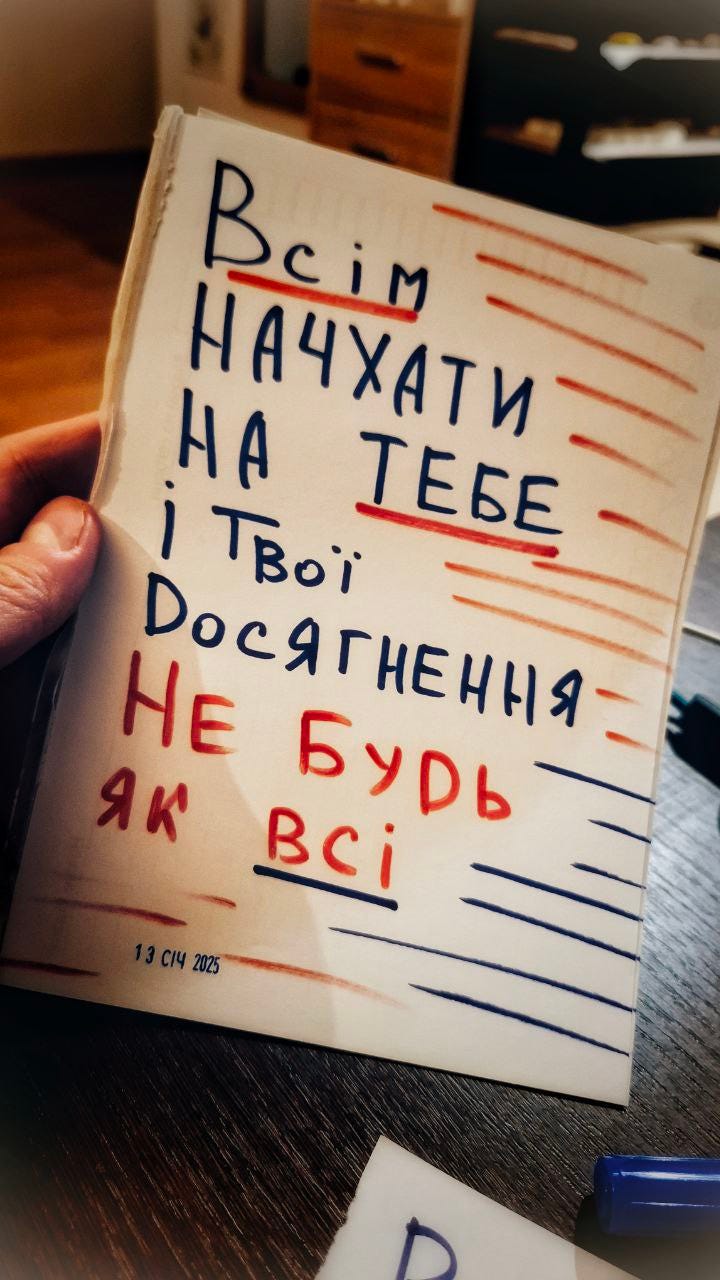 Всім
НАЧХАТИ
НА ТЕБЕ
і Твої
DОСЯГНЕННЯ
НЕ БУDЬ
ЯК ВСІ
13 СІЧ 2025